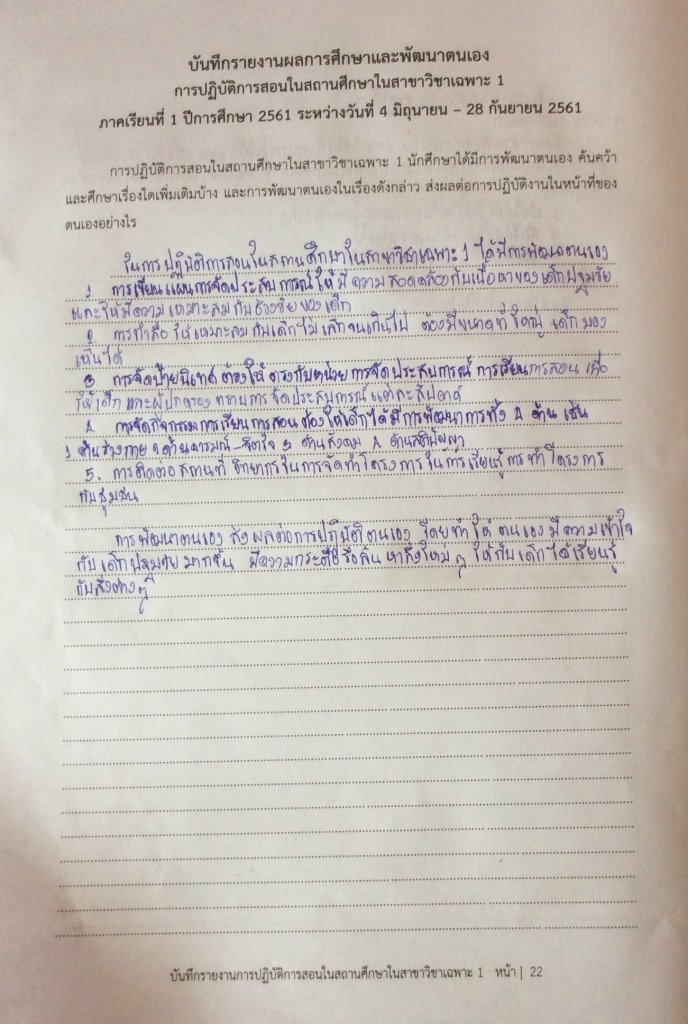 บันทึกรายงานผลการศึกษาและพัฒนาตนเอง
การปฏิบัติการสอนในสถานศึกษาในสาขาวิชาเฉพาะ 1
ภาคเรียนที่ 1 ปีการศึกษา 2561 ระหว่างวันที่ 4 มิถุนายน – 28 กันยายน 2561
การปฏิบัติการสอนในสถานศึกษาในสาขาวิชาเฉพาะ 1 นักศึกษาได้มีการพัฒนาตนเอง ค้นคว้า
และศึกษาเรื่องใดเพิ่มเติมบ้าง และการพัฒนาตนเองในเรื่องดังกล่าว ส่งผลต่อการปฏิบัติงานในหน้าที่ของ
ตนเองอย่างไร
ในการปฏิบัติการสอนในสถานศึกษาในสาขาวิชาเฉพาะ 1 ได้มีการพัฒนาตนเอง
1 การเขียนแผนการจัดประสบการณ์ ให้มีความสอดคล้องกับเนื้อหาของเด็กปฐมวัย
และให้มีความเหมาะสมกับช่วงวัยของเด็ก
2 การทำสื่อ ให้เหมาะสมกับเด็กไม่เล็กจนเกินไป ต้องมีขนาดที่ใหญ่ เด็กมอง
เห็นได้
3 การจัดป้ายนิเทศ ต้องให้ตรงกับหน่วย การจัดประสบการณ์ การเรียนการสอน เพื่อ
ให้เด็ก และผู้ปกครอง ทราบการจัดประสบการณ์ แต่ละสัปดาห์
4 การจัดกิจกรรมการเรียนการสอน ต้องให้เด็กได้มีการพัฒนาการทั้ง 4 ด้าน เช่น
1 ด้านร่างกาย 2 ด้านอารมณ์-จิตใจ 3 ด้านสังคม 4 ด้านสติปัญญา
5. การติดต่อสถานที่ วิทยากรในการจัดทำโครงการ ในการเรียนรู้การทำโครงการ
กับชุมชน
การพัฒนาตนเอง ส่งผลต่อการปฏิบัติตนเอง โดยทำให้ตนเองมีความเข้าใจ
กับเด็กปฐมวัยมากขึ้น มีความกระตือรือล้น หาสิ่งใหม่ๆ ให้กับเด็กได้เรียนรู้
กับสิ่งต่างๆ
บันทึกรายงานการปฏิบัติการสอนในสถานศึกษาในสาขาวิชาเฉพาะ 1 หน้า | 22